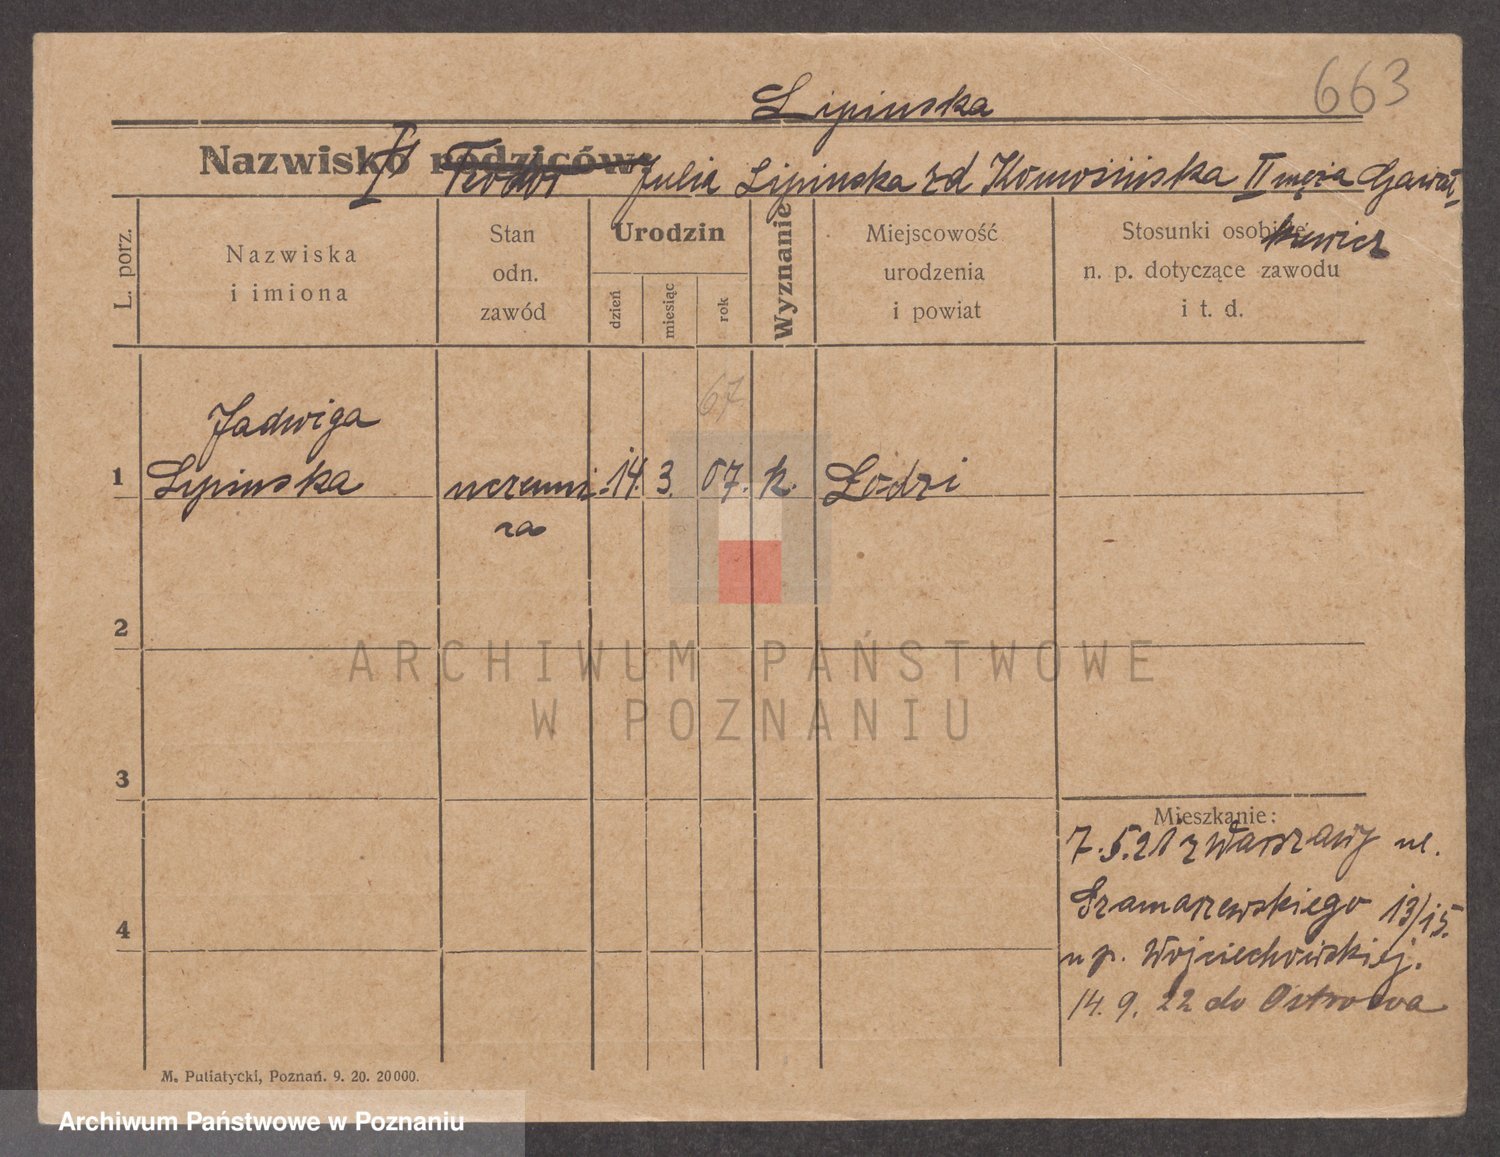 663
Lipinska
Nazwisko rodziców:
I Teodor Julia Lipinska zd II męża Gawał-
kiewicz
L. porz.
Nazwiska
i imiona
Stan
odn.
zawód
Urodzin
dzień
miesiąc
rok
Wyznanie
Miejscowość
urodzenia
i powiat
Stosunki osobiste
n. p. dotyczące zawodu
i t. d.
67
Jadwiga
1 Lipinska uczenni- 14. 3. 07. k. Łodzi
ca
2
3
4
Mieszkanie:
7.5.21 z Warszawy ul.
Szamarzewskiego 13/15.
u p. Wojciechowskiej.
14. 9. 22 do Ostrowa
M. Putiatycki, Poznań. 9. 20. 20000.
ARCHIWUM PAŃSTWOWE
W POZNANIU
Archiwum Państwowe w Poznaniu